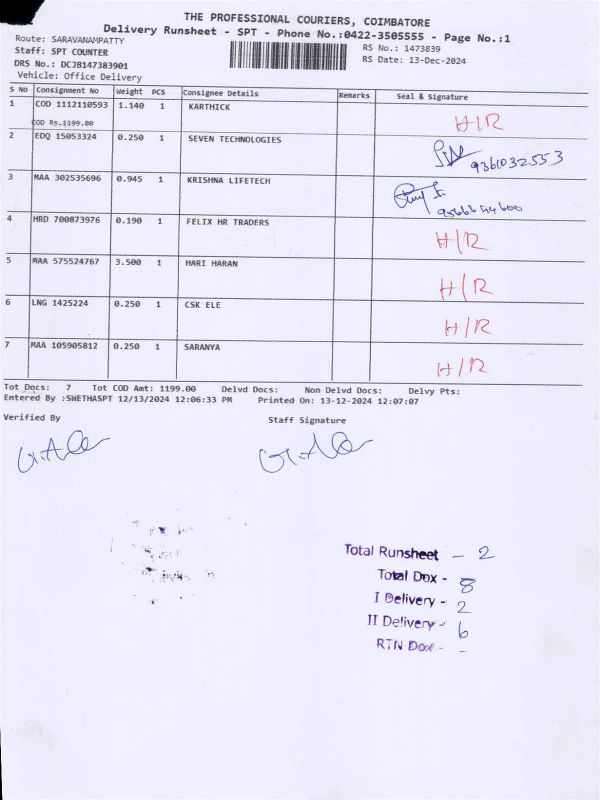 THE PROFESSIONAL COURIERS, COIMBATORE
Delivery Runsheet - SPT - Phone No.:0422-3505555 - Page No.:1
Route: SARAVANAMPATTY
RS No.: 1473839
Staff: SPT COUNTER
RS Date: 13-Dec-2024
DRS No.: DCJB147383901
Vehicle: Office Delivery
S No Consignment No Weight PCS Consignee Details Remarks Seal & Signature
1 COD 1112110593 1.140 1 KARTHICK H/R
COD Rs.1199.00
2 EDQ 15053324 0.250 1 SEVEN TECHNOLOGIES 9361032553
3 MAA 302535696 0.945 1 KRISHNA LIFETECH
4 HRD 700873976 0.190 1 FELIX HR TRADERS H/R
5 MAA 575524767 3.500 1 HARI HARAN H/R
6 LNG 1425224 0.250 1 CSK ELE H/R
7 MAA 105905812 0.250 1 SARANYA H/R
Tot Docs: 7 Tot COD Amt: 1199.00 Delvd Docs: Non Delvd Docs: Delvy Pts:
Entered By :SWETHASPT 12/13/2024 12:06:33 PM Printed On: 13-12-2024 12:07:07
Verified By Staff Signature
Total Runsheet - 2
Total Dox - 8
I Delivery - 2
II Delivery - 6
RTN Dox - -